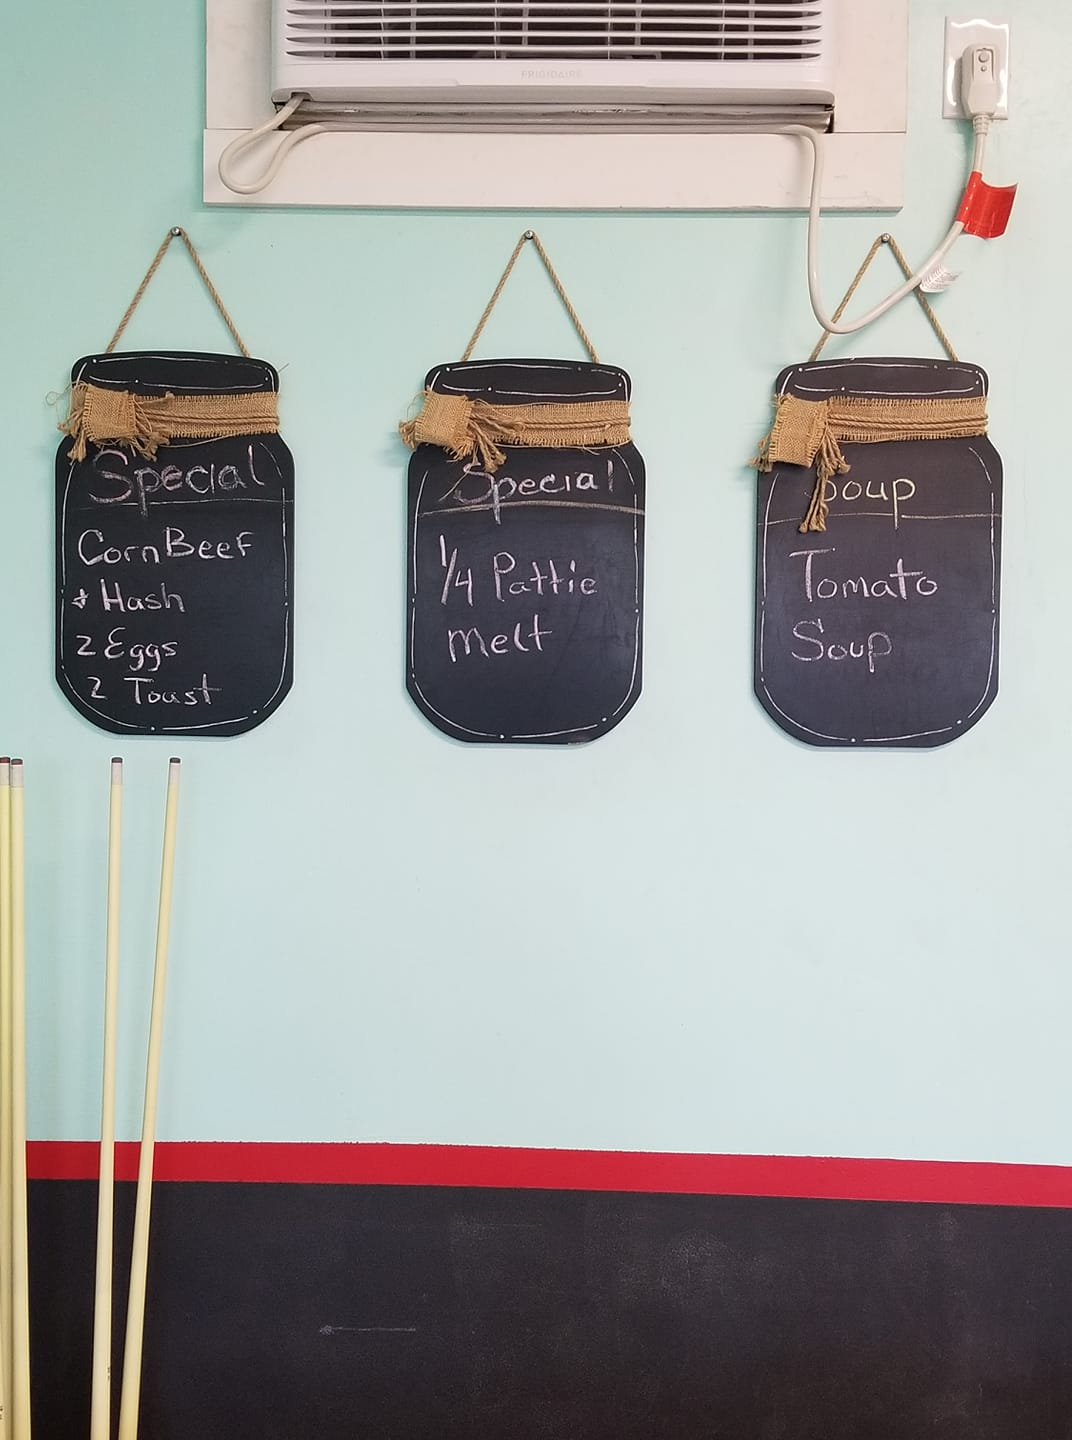 FRIGIDAIRE
Special
Corn Beef
+ Hash
2 Eggs
2 Toast
Special
1/4 Pattie
melt
Soup
Tomato
Soup